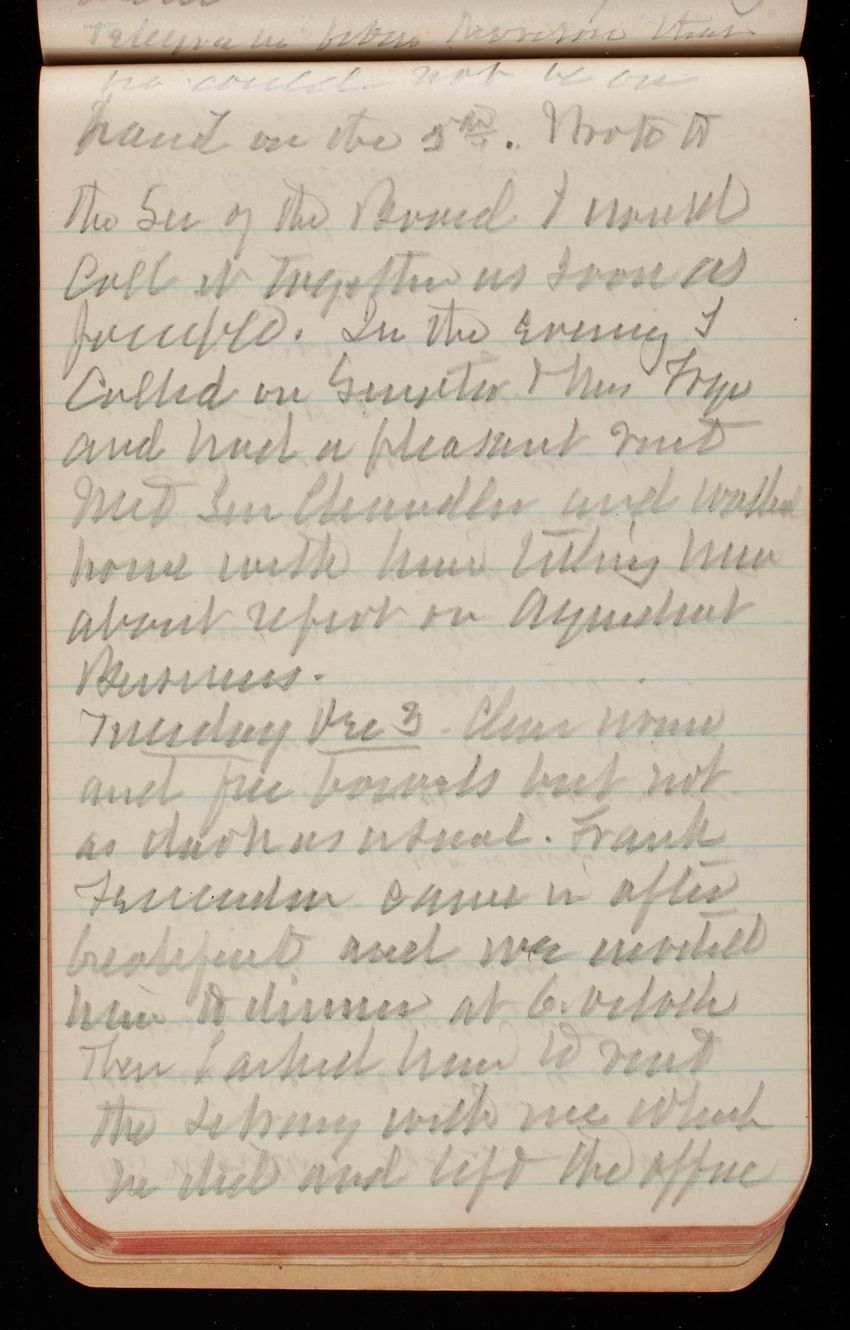 Telegram from Davidson that
he could not be on
hand on the 5th. Wrote to
the Sec of the Board I would
Call it together as soon as
possible. In the evening I
Called on Senator & Mrs Frye
and had a pleasant visit
Met Sen Chandler and walked
home with him telling him
about report on Aqueduct
Business.
Tuesday Dec 3. Clear nose
and free bowels but not
as dark as usual. Frank
Fessenden came in after
breakfast and we invited
him to dinner at 6. oclock
Then I asked him to visit
the Library with me which
he did and left the office